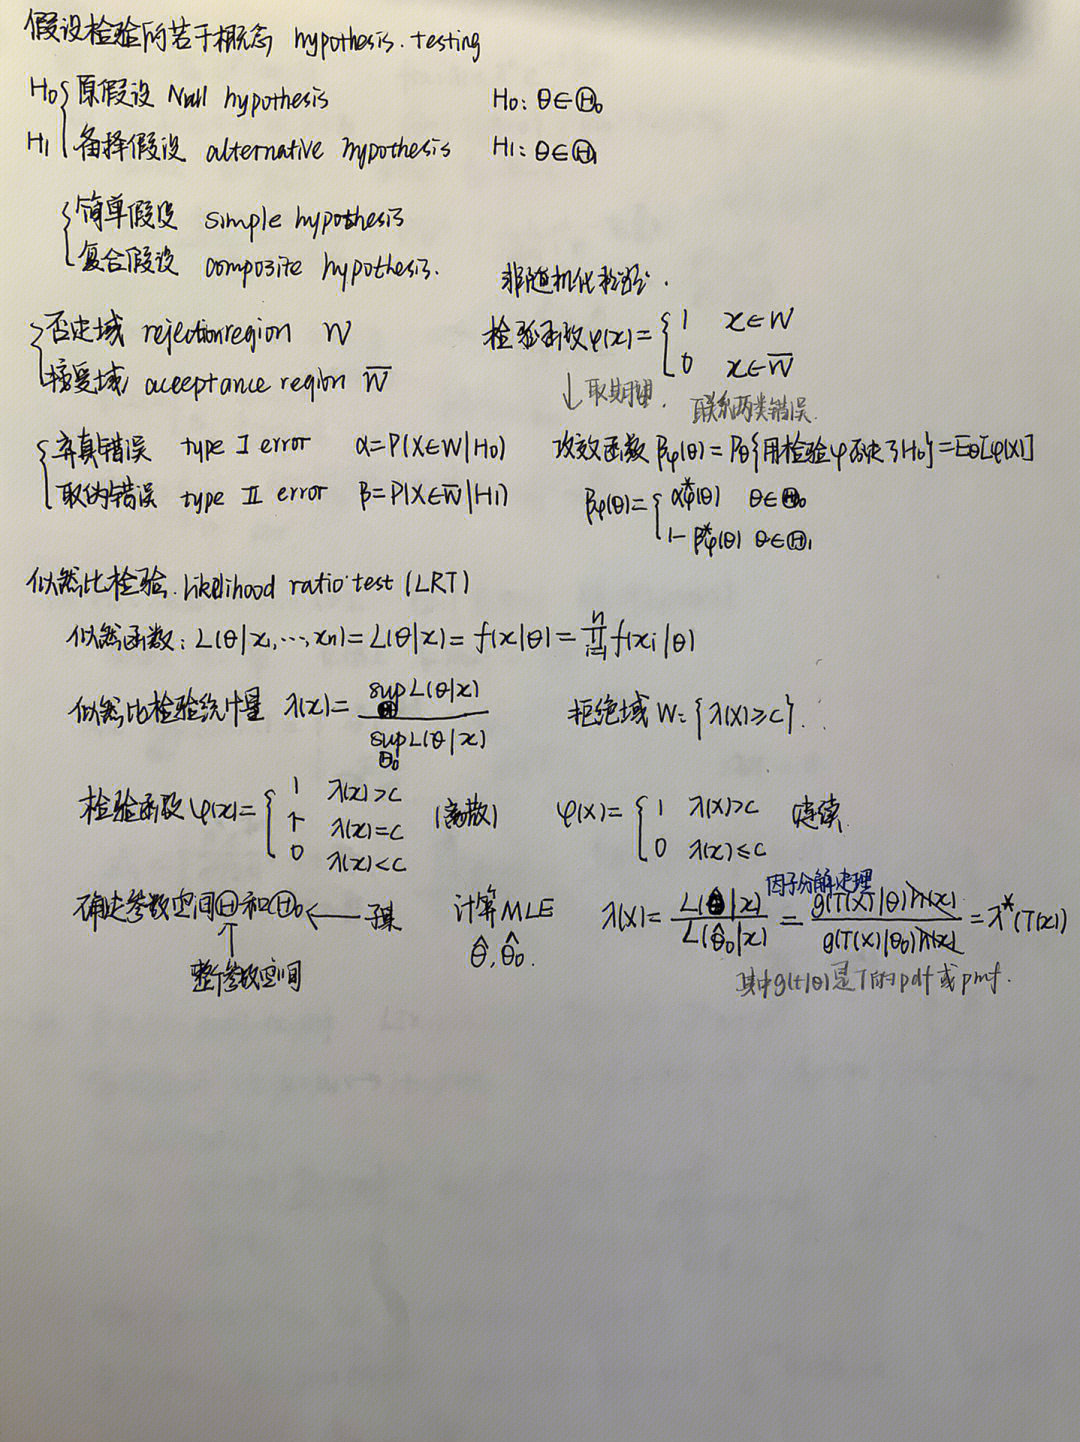 假设检验的若干概念 hypothesis. testing
H0 原假设 Null hypothesis H0: θ∈Θ0
H1 备择假设 alternative hypothesis H1: θ∈Θ1
简单假设 simple hypothesis
复合假设 composite hypothesis.
非随机化检验.
否定域 rejection region W
接受域 acceptance region W̅
检验函数φ(x)= { 1 x∈W
0 x∈W̅
↓取期望. 联系两类错误.
弃真错误 type I error α=P(X∈W|H0) 功效函数βφ(θ)=Pθ{用检验φ否定了H0}=Eθ[φ(X)]
取伪错误 type II error β=P(X∈W̅|H1)
βφ(θ)= { α*φ(θ) θ∈Θ0
1-β*φ(θ) θ∈Θ1
似然比检验. likelihood ratio test (LRT)
似然函数: L(θ|x1,…,xn)=L(θ|x)=f(x|θ)=∏(i=1,n) f(xi|θ)
似然比检验统计量 λ(x)= sup_Θ L(θ|x) / sup_Θ0 L(θ|x) 拒绝域 W={λ(X)≥c}.
检验函数φ(x)= { 1 λ(x)>c
r λ(x)=c (离散)
0 λ(x)<c
φ(X)= { 1 λ(X)>c 连续
0 λ(x)≤c
确定参数空间Θ和Θ0 ← 子集
↑
整个参数空间
计算MLE
θ̂, θ̂0.
因子分解定理
λ(X)= L(θ̂|x) / L(θ̂0|x) = g(T(X)|θ)h(x) / g(T(X)|θ0)h(x) = λ*(T(x))
其中g(t|θ)是T的pdf或pmf.